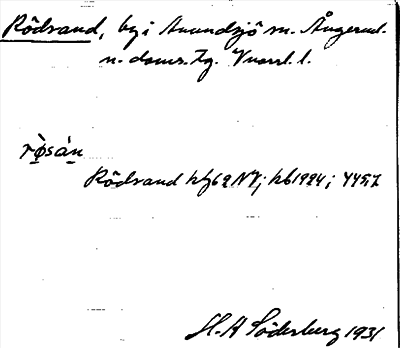 Rödsand, by i Anundsjö sn. Ångerml.
n. doms. tg. Vnorrl. l.
rò̱sá̱n
Rödsand kbl 62 NV; kb 1924; 445,7
H. H Söderberg 1931